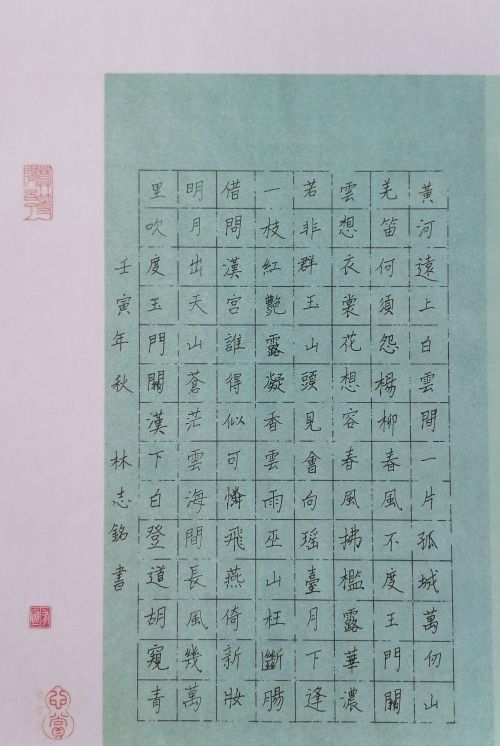 黃河遠上白雲間一片孤城萬仞山
羌笛何須怨楊柳春風不度王門關
雲想衣裳花想容春風拂檻露華濃
若非群玉山頭見會向瑤臺月下逢
一枝紅艷露凝香雲雨巫山枉斷腸
借問漢宮誰得似可憐飛燕倚新妝
明月出天山蒼茫雲海間長風幾萬
里吹度玉門關漢下白登道胡窺青
壬寅年秋 林志銘書